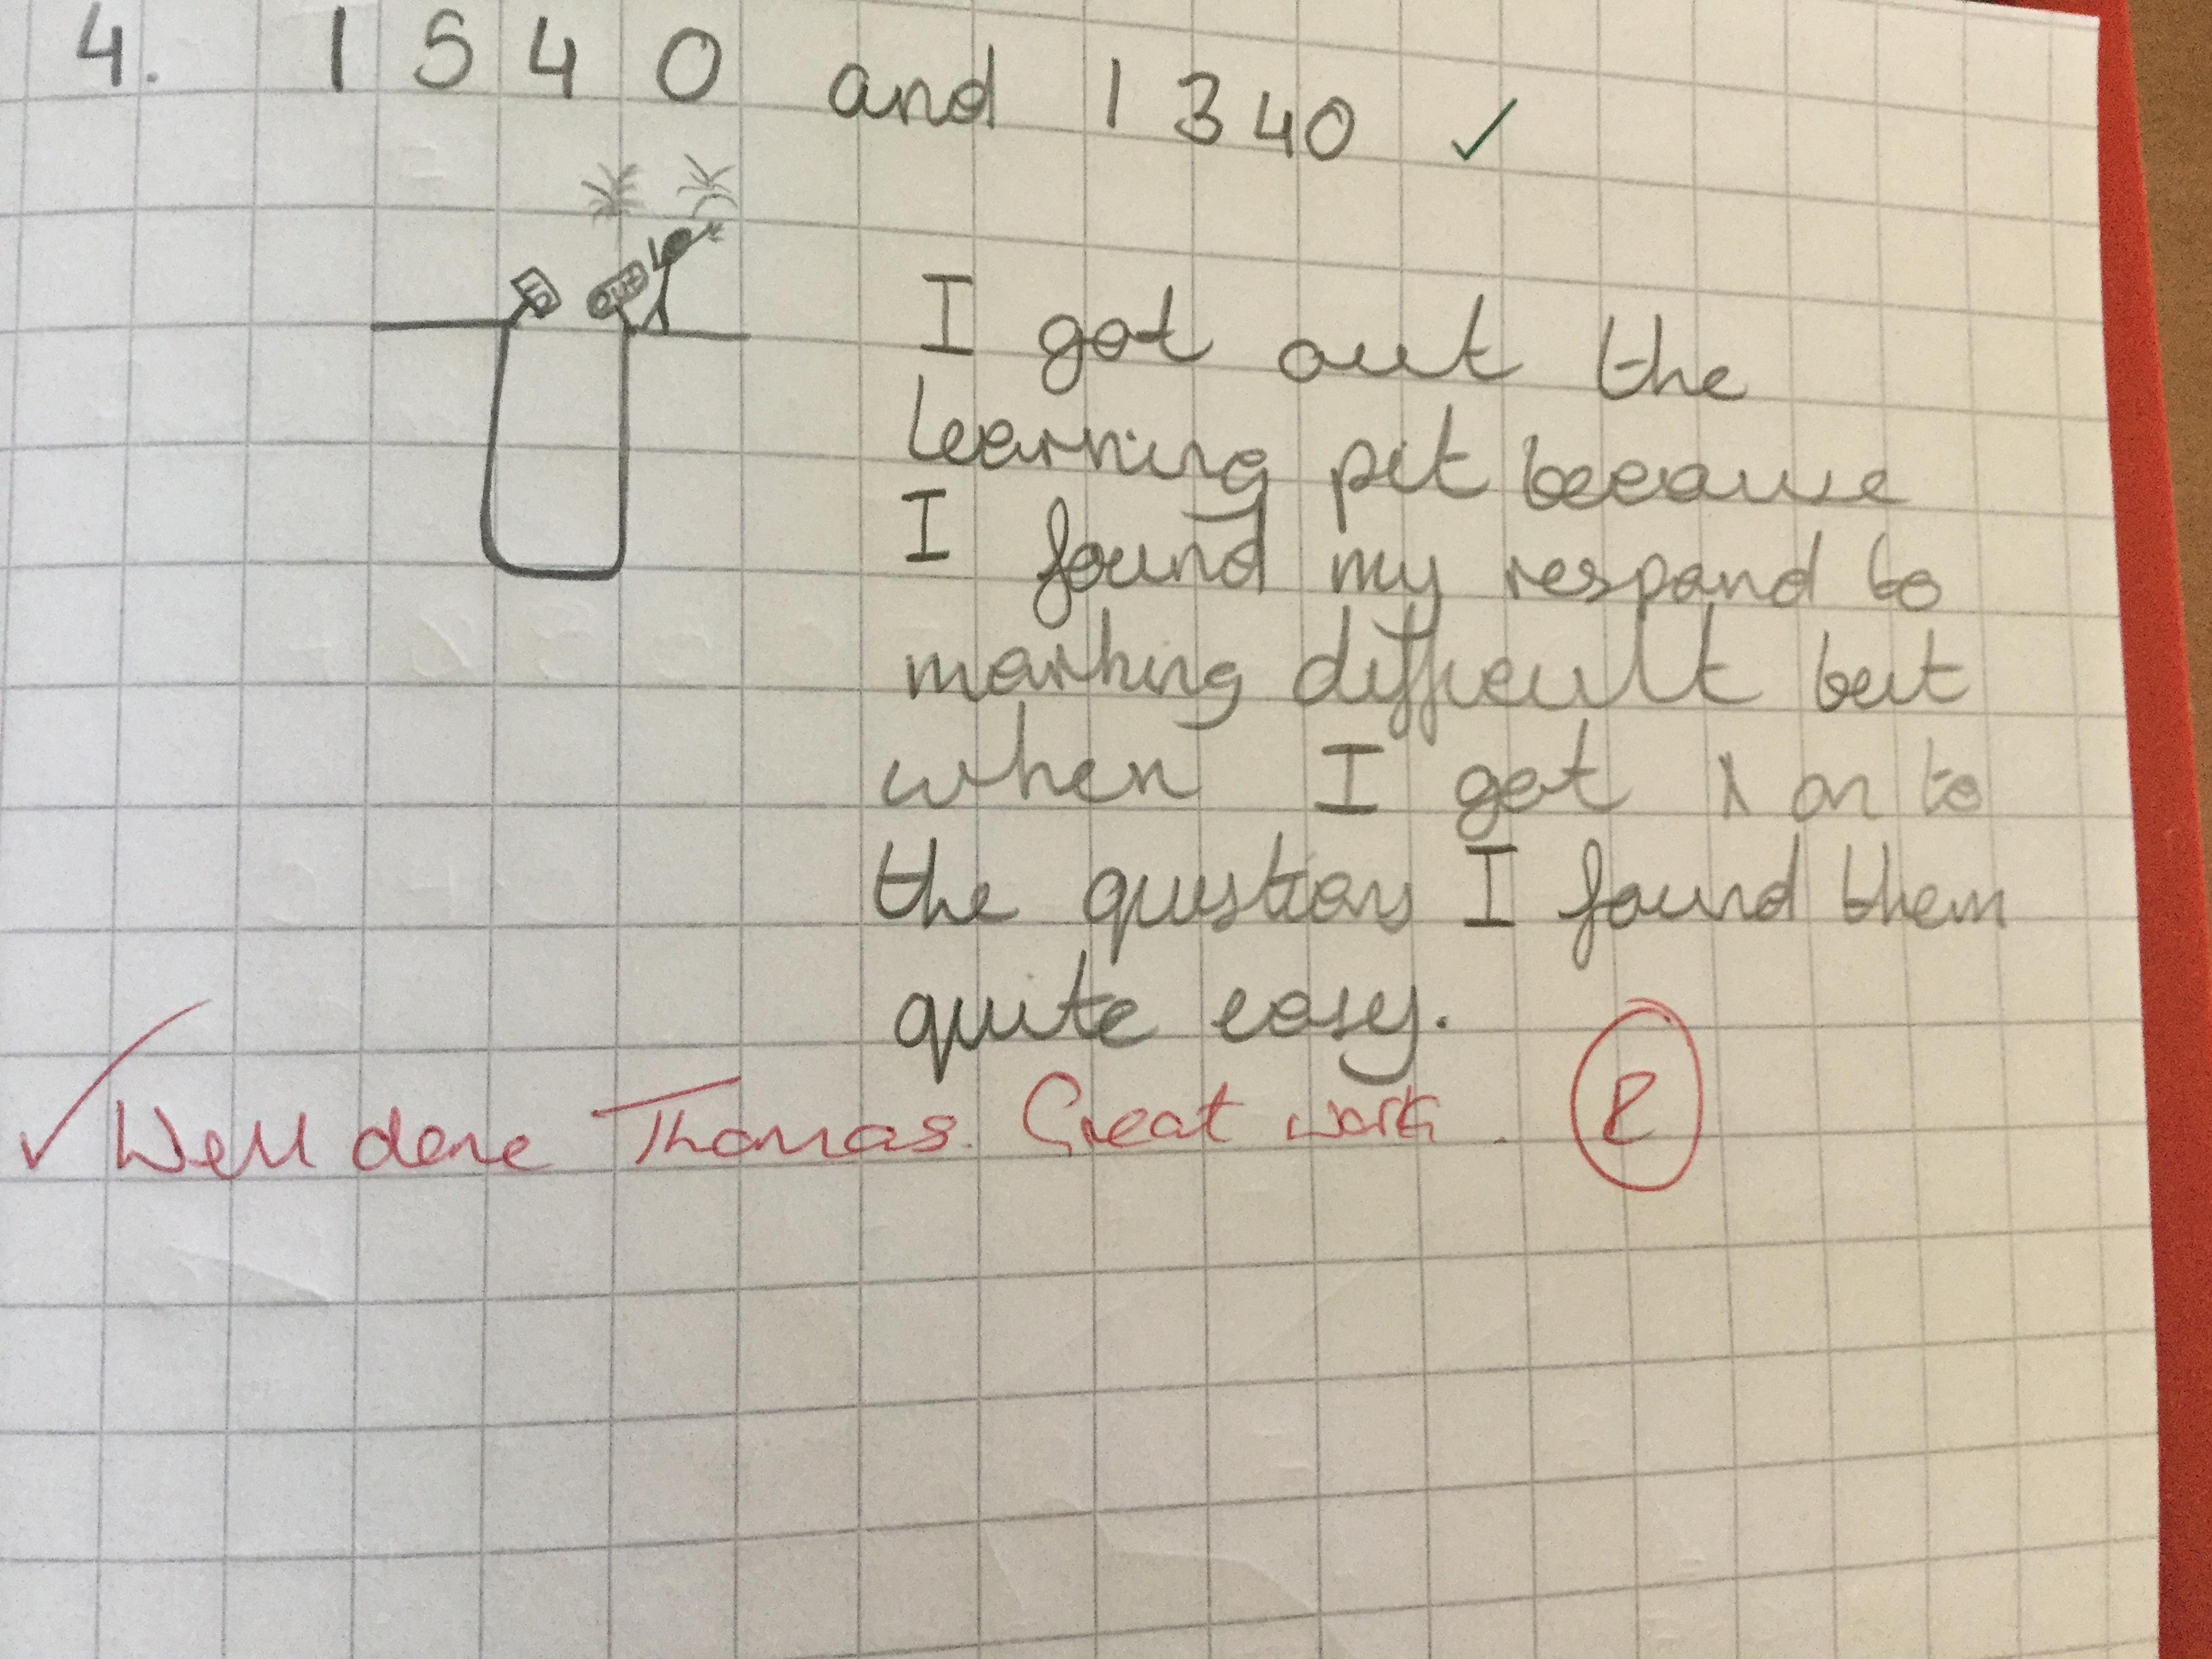 4. 1540 and 1340 ✓
in out
I got out the
learning pit because
I found my respond to
marking difficult but
when I got on to
the questions I found them
quite easy.
✓ Well done Thomas. Great work.